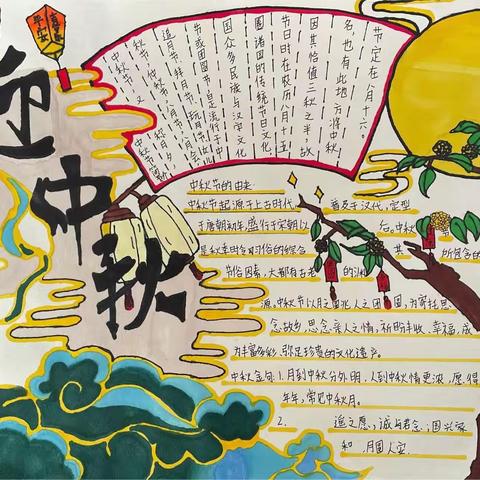 迎中秋
平安
中秋节,又
追月节
节或团圆节,是流行于中
国众多民族与汉字文化
圈诸国的传统节日文化
节日时在农历八月十五
因其恰值三秋之半,故
名,也有些地方将中秋
节定在八月十六。
中秋节的由来:
中秋节起源于上古时代,普及于汉代,定型
于唐朝初年,盛行于宋朝以后。中秋节
是秋季时令习俗的综合,其所包含的
节俗因素,大都有古老的渊
源,中秋节以月之圆兆人之团圆,为寄托思
念故乡,思念亲人之情,祈盼丰收、幸福,成
为丰富多彩、弥足珍贵的文化遗产。
中秋金句:1.月到中秋分外明,人到中秋情更浓,愿得
年年,常见中秋月。
2. 追之愿,诚与君念,国兴家
和 月圆人安